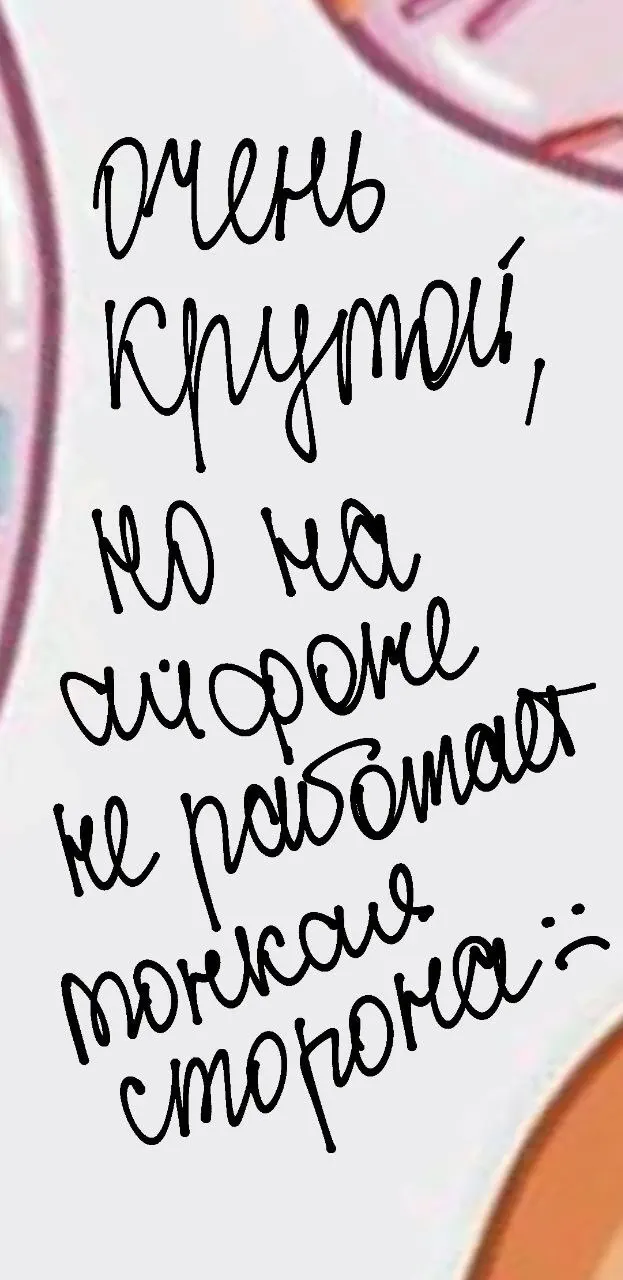 очень
крутой,
но на
айфоне
не работает
тонкая
сторона :(